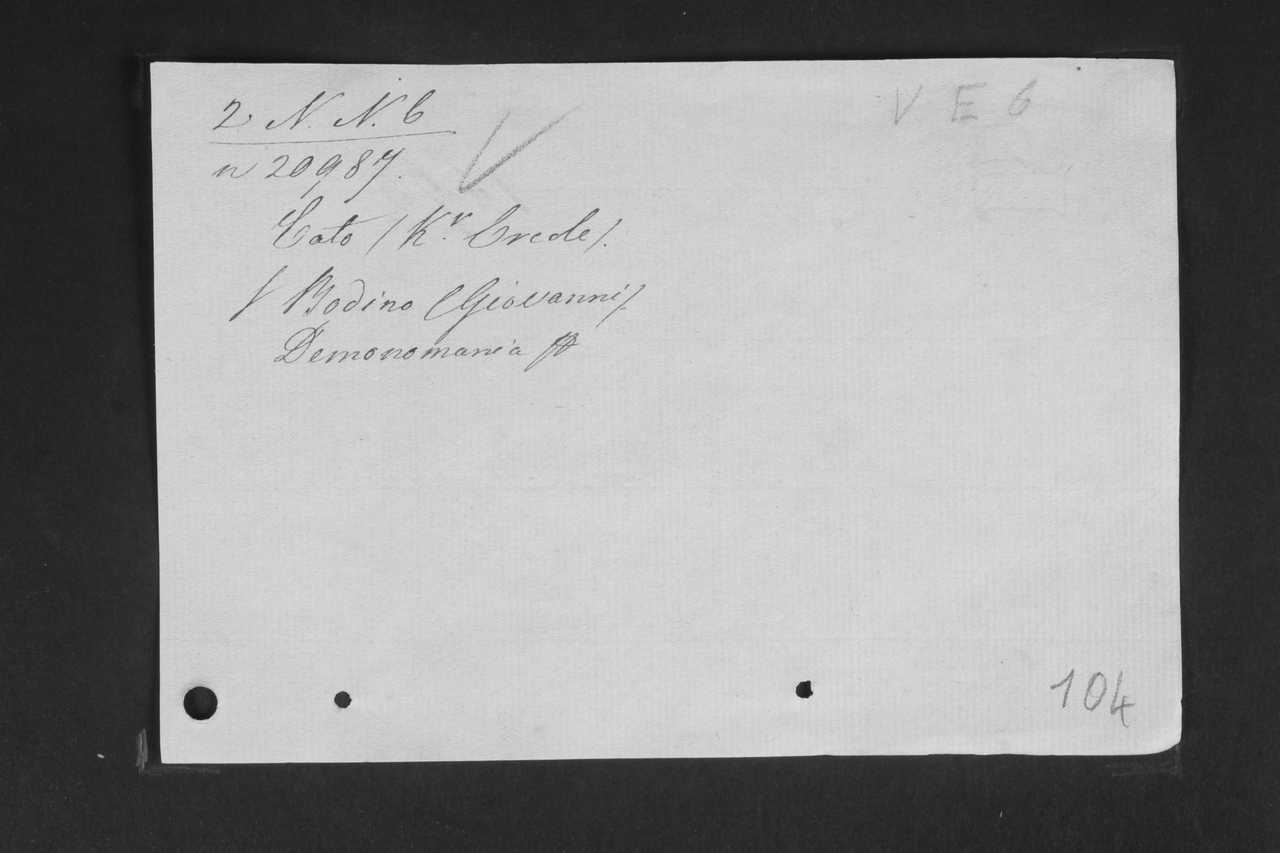 2 N. N. 6
V E 6
n 20987.
Cato (Kr. Crede).
Bodino (Giovanni).
Demonomania
104